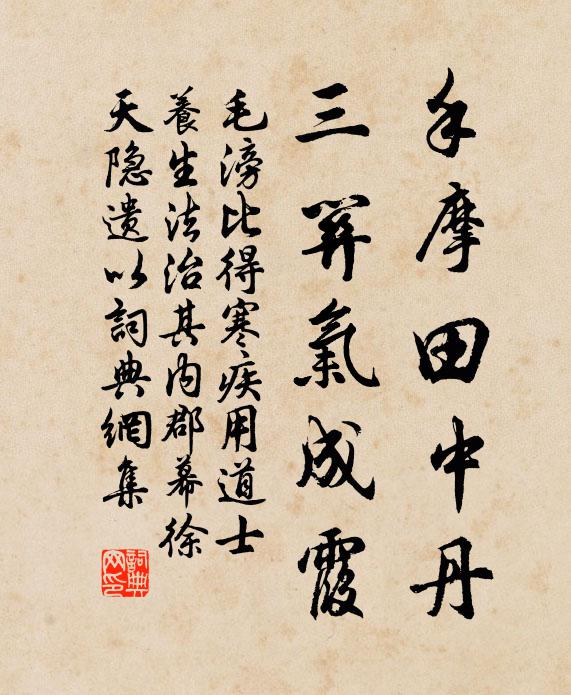 手摩田中丹
三關氣成霞
毛滂比得寒疾用道士
養生法治其内郡幕徐
天隱遺以詞典網集
詞典網印